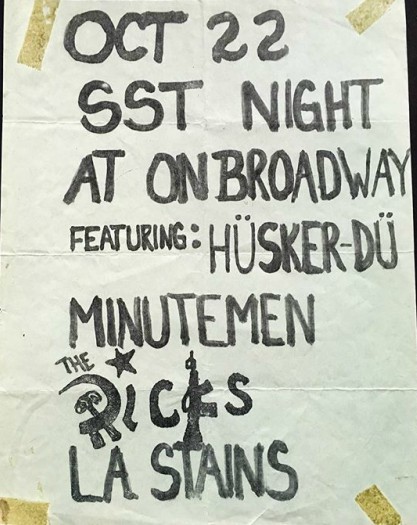 OCT 22
SST NIGHT
AT ON BROADWAY
FEATURING: HÜSKER-DÜ
MINUTEMEN
THE
DICKS
LA STAINS